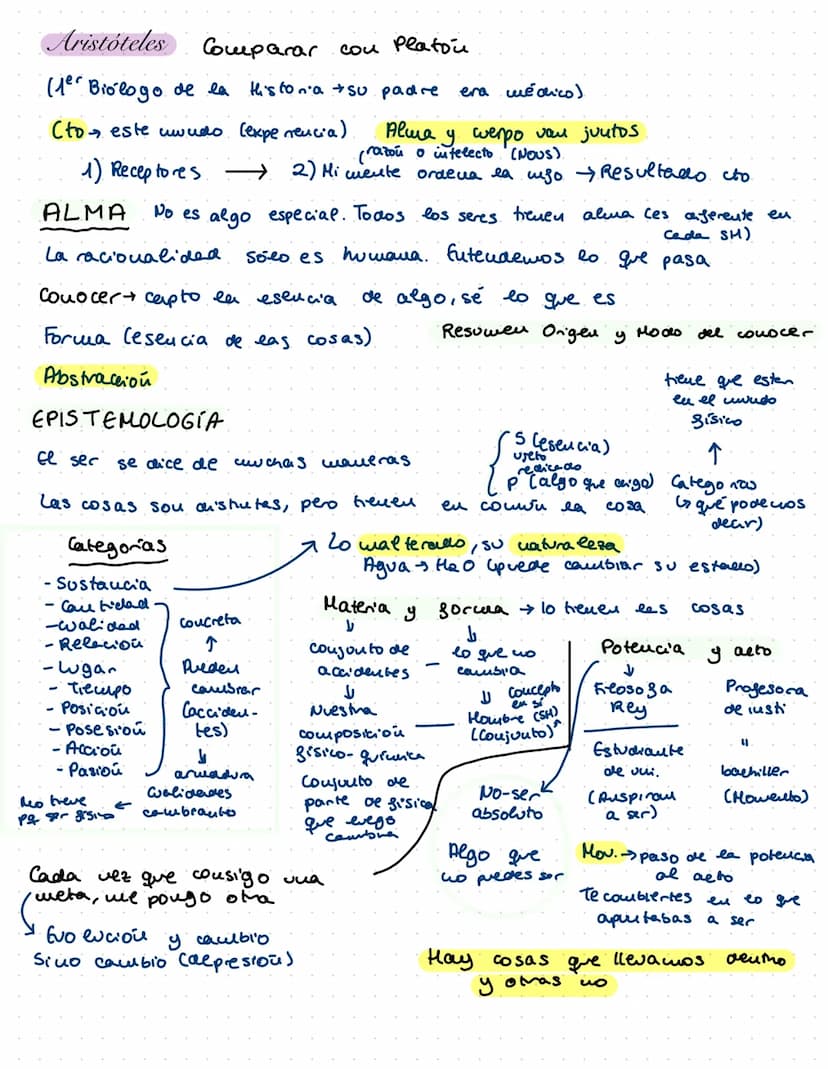 Aristóteles Comparar con Platón
(1er Biólogo de la Historia → su padre era médico)
Cto → este mundo (experiencia) Alma y cuerpo van juntos
razón o intelecto (NOUS)
1) Receptores → 2) Mi mente ordena la info → Resultado cto
ALMA No es algo especial. Todos los seres tienen alma (es diferente en
cada SH)
La racionalidad sólo es humana. Entendemos lo que pasa
Conocer → capto la esencia de algo, sé lo que es
Forma (esencia de las cosas) Resumen Origen y Modo del conocer
Abstracción
tiene que estar
en el mundo
físico
↑
EPISTEMOLOGÍA
El ser se dice de muchas maneras
S (esencia)
ujeto
redicado
P (algo que digo)
Categorías
(→ qué podemos
decir)
Las cosas son distintas, pero tienen en común la cosa
Categorías
- Sustancia → Lo inalterado, su naturaleza
Agua → H2O (puede cambiar su estado)
- Cantidad
- Cualidad
- Relación
- Lugar
- Tiempo
- Posición
- Posesión
- Acción
- Pasión
concreta
↑
Pueden
cambiar
(acciden-
tes)
↓
armadura
Cualidades
cambiante
No tiene
pq ser físico ←
Materia y forma → lo tienen las cosas
↓
conjunto de
accidentes
↓
Nuestra
composición
físico-química
Conjunto de
parte de física
que luego
cambia
↓
lo que no
cambia
⇓ concepto
en sí
Hombre (SH)
(conjunto)
Potencia y acto
↓
Filosofa
Rey
Estudiante
de uni.
(Aspiran
a ser)
Profesora
de insti
"
bachiller
(Momento)
No-ser
absoluto
Algo que
no puedes ser
Mov. → paso de la potencia
al acto
Te combiertes en lo que
apuntabas a ser
Cada vez que consigo una
meta, me pongo otra
→ Evolución y cambio
Sino cambio (depresión)
Hay cosas que llevamos dentro
y otras no